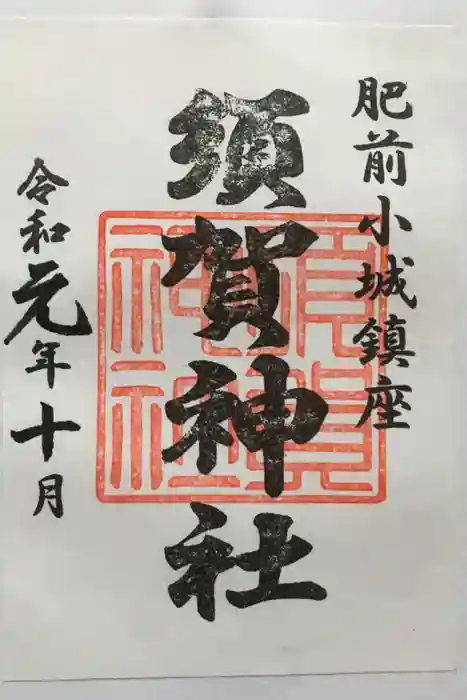 肥前小城鎮座
須賀神社
須賀神社
令和元年十月